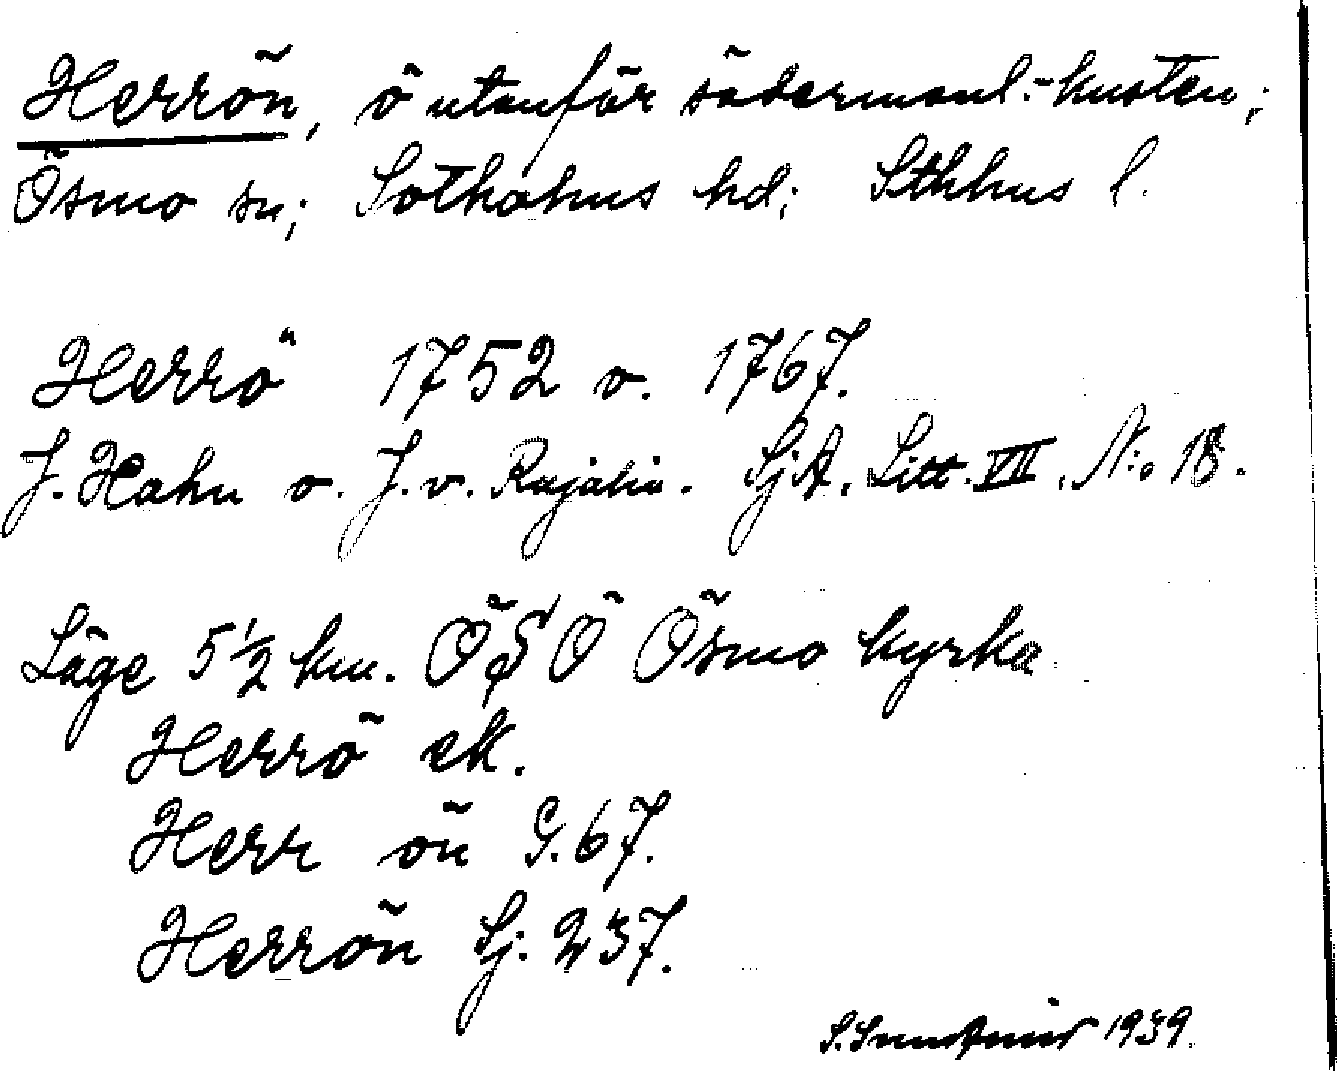 Herrön, ö utanför södermanl.-kusten;
Ösmo sn; Sotholms hd; Sthlms l.
Herrö 1752 o. 1767.
J. Hahn o. J. v. Rajalin. SjA. Litt. VII. N:o 18.
Läge 5½ km. ÖSÖ Ösmo kyrka.
Herrö ek.
Herr ön G. 67.
Herrön Sj. 237.
1939.